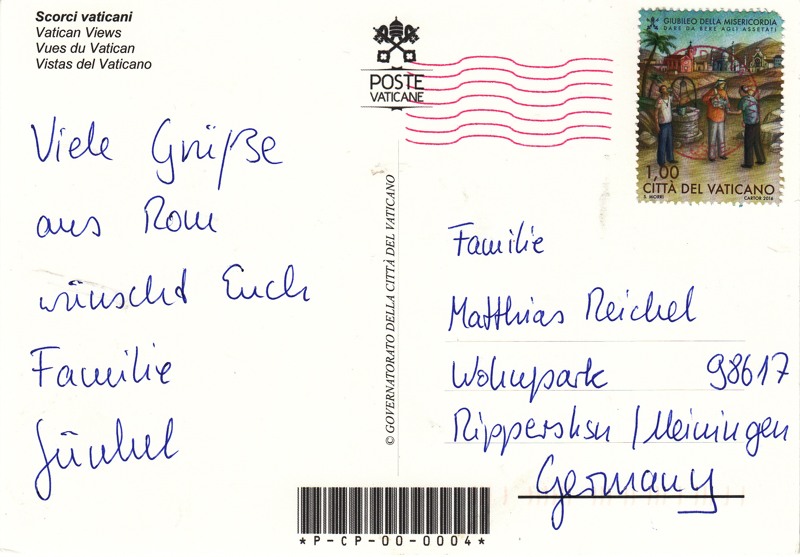 Scorci vaticani
Vatican Views
Vues du Vatican
Vistas del Vaticano
POSTE
VATICANE
GIUBILEO DELLA MISERICORDIA
DARE DA BERE AGLI ASSETATI
1,00
CITTÀ DEL VATICANO
CARTOR 2016
Viele Grüße
aus Rom
wünscht Euch
Familie
© GOVERNATORATO DELLA CITTÀ DEL VATICANO
Familie
Matthias Reichel
Wohnpark 98617
/Meiningen
Germany
*P-CP-00-0004*